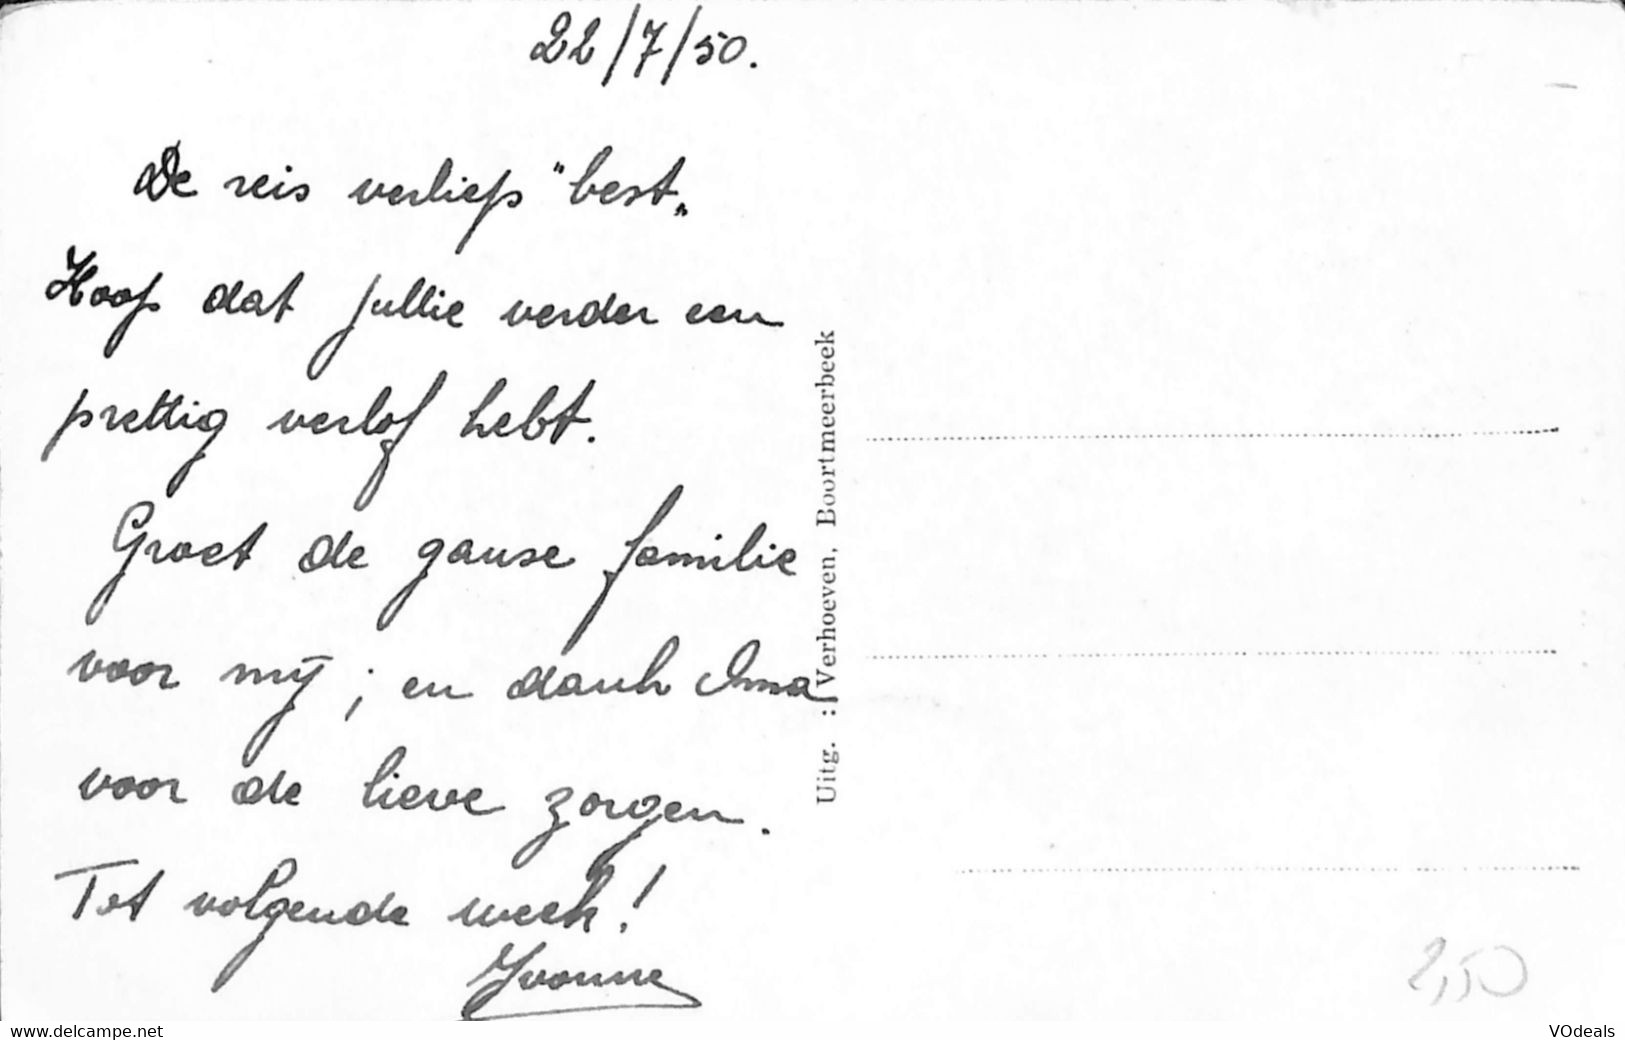 22/7/50.
De reis verliep "best„
Hoop dat jullie verder een
prettig verlof hebt.
Groet de ganse familie
voor mij ; en dank Oma
voor de lieve zorgen.
Tot volgende week!
Yvonne
Uitg. : Verhoeven, Boortmeerbeek
2,50
www.delcampe.net
VOdeals